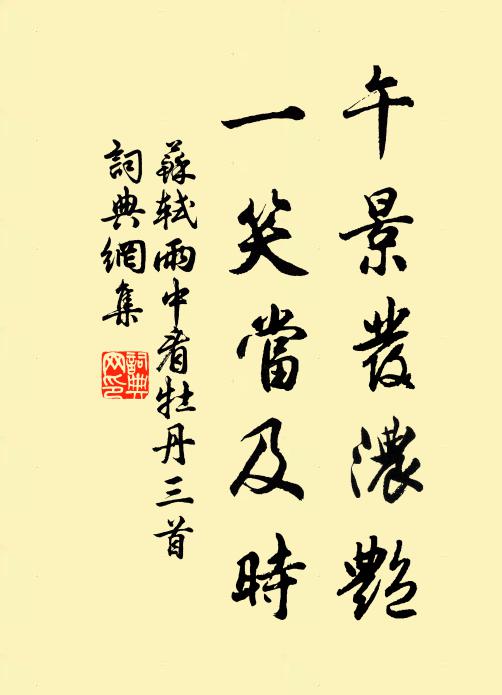 午景發濃艷
一笑當及時
蘇軾雨中看牡丹三首
詞典網集
詞典網印